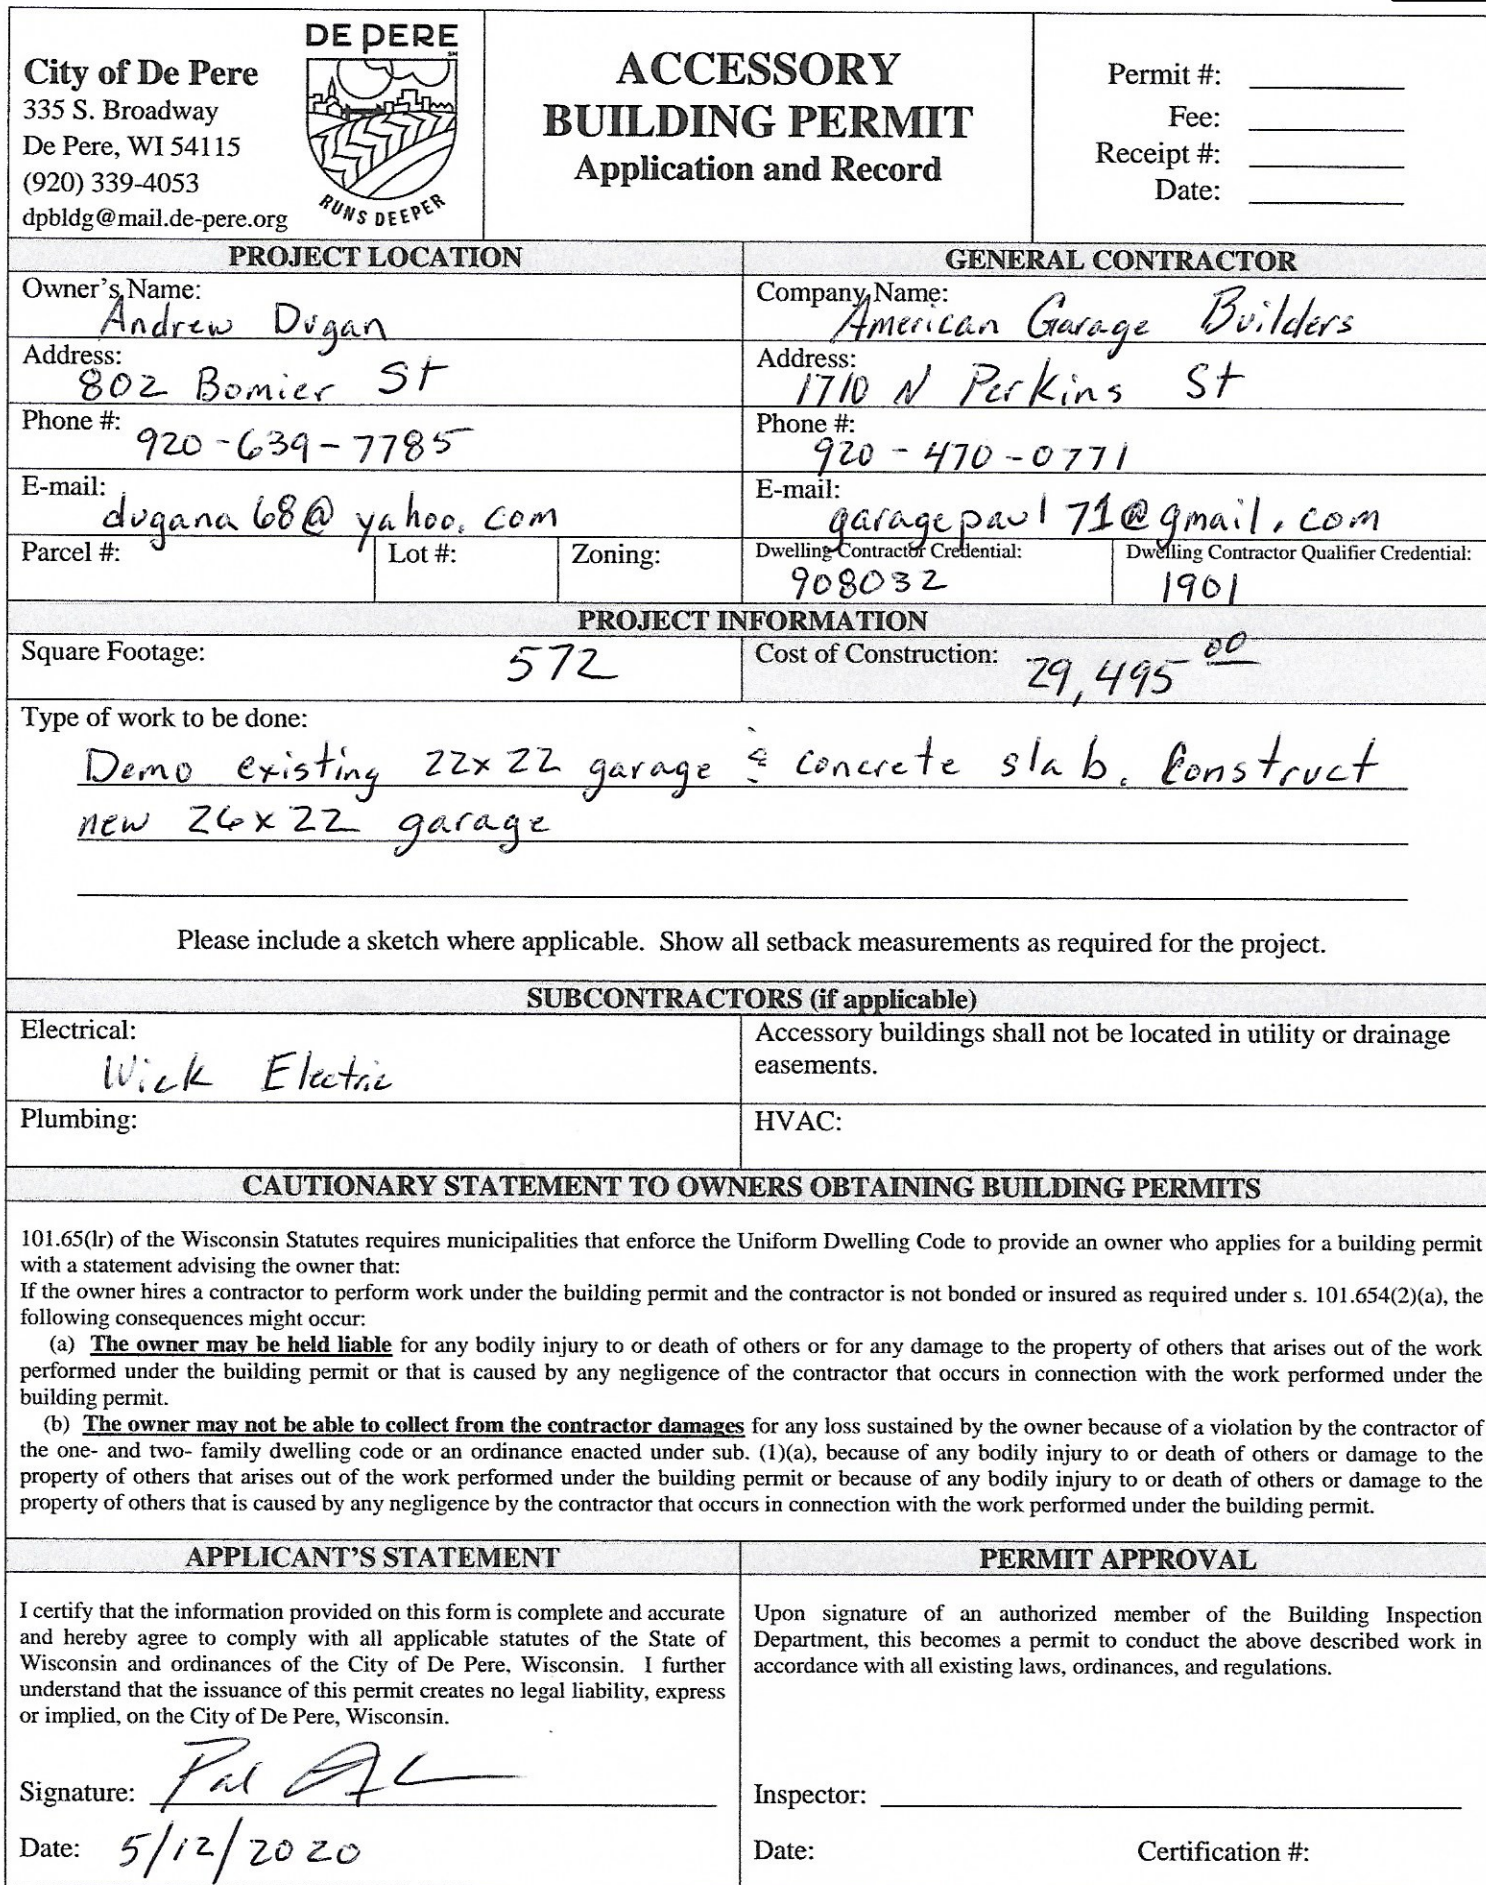 City of De Pere
335 S. Broadway
De Pere, WI 54115
(920) 339-4053
dpbldg@mail.de-pere.org
DE PERE
RUNS DEEPER
ACCESSORY
BUILDING PERMIT
Application and Record
Permit #:
Fee:
Receipt #:
Date:
PROJECT LOCATION
GENERAL CONTRACTOR
Owner's Name:
Andrew Dugan
Company Name:
American Garage Builders
Address:
802 Bomier St
Address:
1710 N Perkins St
Phone #:
920-639-7785
Phone #:
920-470-0771
E-mail:
dugana68@yahoo.com
E-mail:
garagepaul71@gmail.com
Parcel #:
Lot #:
Zoning:
Dwelling Contractor Credential:
908032
Dwelling Contractor Qualifier Credential:
1901
PROJECT INFORMATION
Square Footage: 572
Cost of Construction: 29,495 00
Type of work to be done:
Demo existing 22x22 garage & concrete slab. Construct
new 26x22 garage
Please include a sketch where applicable. Show all setback measurements as required for the project.
SUBCONTRACTORS (if applicable)
Electrical:
Wick Electric
Accessory buildings shall not be located in utility or drainage
easements.
Plumbing:
HVAC:
CAUTIONARY STATEMENT TO OWNERS OBTAINING BUILDING PERMITS
101.65(lr) of the Wisconsin Statutes requires municipalities that enforce the Uniform Dwelling Code to provide an owner who applies for a building permit
with a statement advising the owner that:
If the owner hires a contractor to perform work under the building permit and the contractor is not bonded or insured as required under s. 101.654(2)(a), the
following consequences might occur:
(a) The owner may be held liable for any bodily injury to or death of others or for any damage to the property of others that arises out of the work
performed under the building permit or that is caused by any negligence of the contractor that occurs in connection with the work performed under the
building permit.
(b) The owner may not be able to collect from the contractor damages for any loss sustained by the owner because of a violation by the contractor of
the one- and two- family dwelling code or an ordinance enacted under sub. (1)(a), because of any bodily injury to or death of others or damage to the
property of others that arises out of the work performed under the building permit or because of any bodily injury to or death of others or damage to the
property of others that is caused by any negligence by the contractor that occurs in connection with the work performed under the building permit.
APPLICANT'S STATEMENT
I certify that the information provided on this form is complete and accurate
and hereby agree to comply with all applicable statutes of the State of
Wisconsin and ordinances of the City of De Pere, Wisconsin. I further
understand that the issuance of this permit creates no legal liability, express
or implied, on the City of De Pere, Wisconsin.
Signature:
Date: 5/12/2020
PERMIT APPROVAL
Upon signature of an authorized member of the Building Inspection
Department, this becomes a permit to conduct the above described work in
accordance with all existing laws, ordinances, and regulations.
Inspector:
Date:
Certification #: